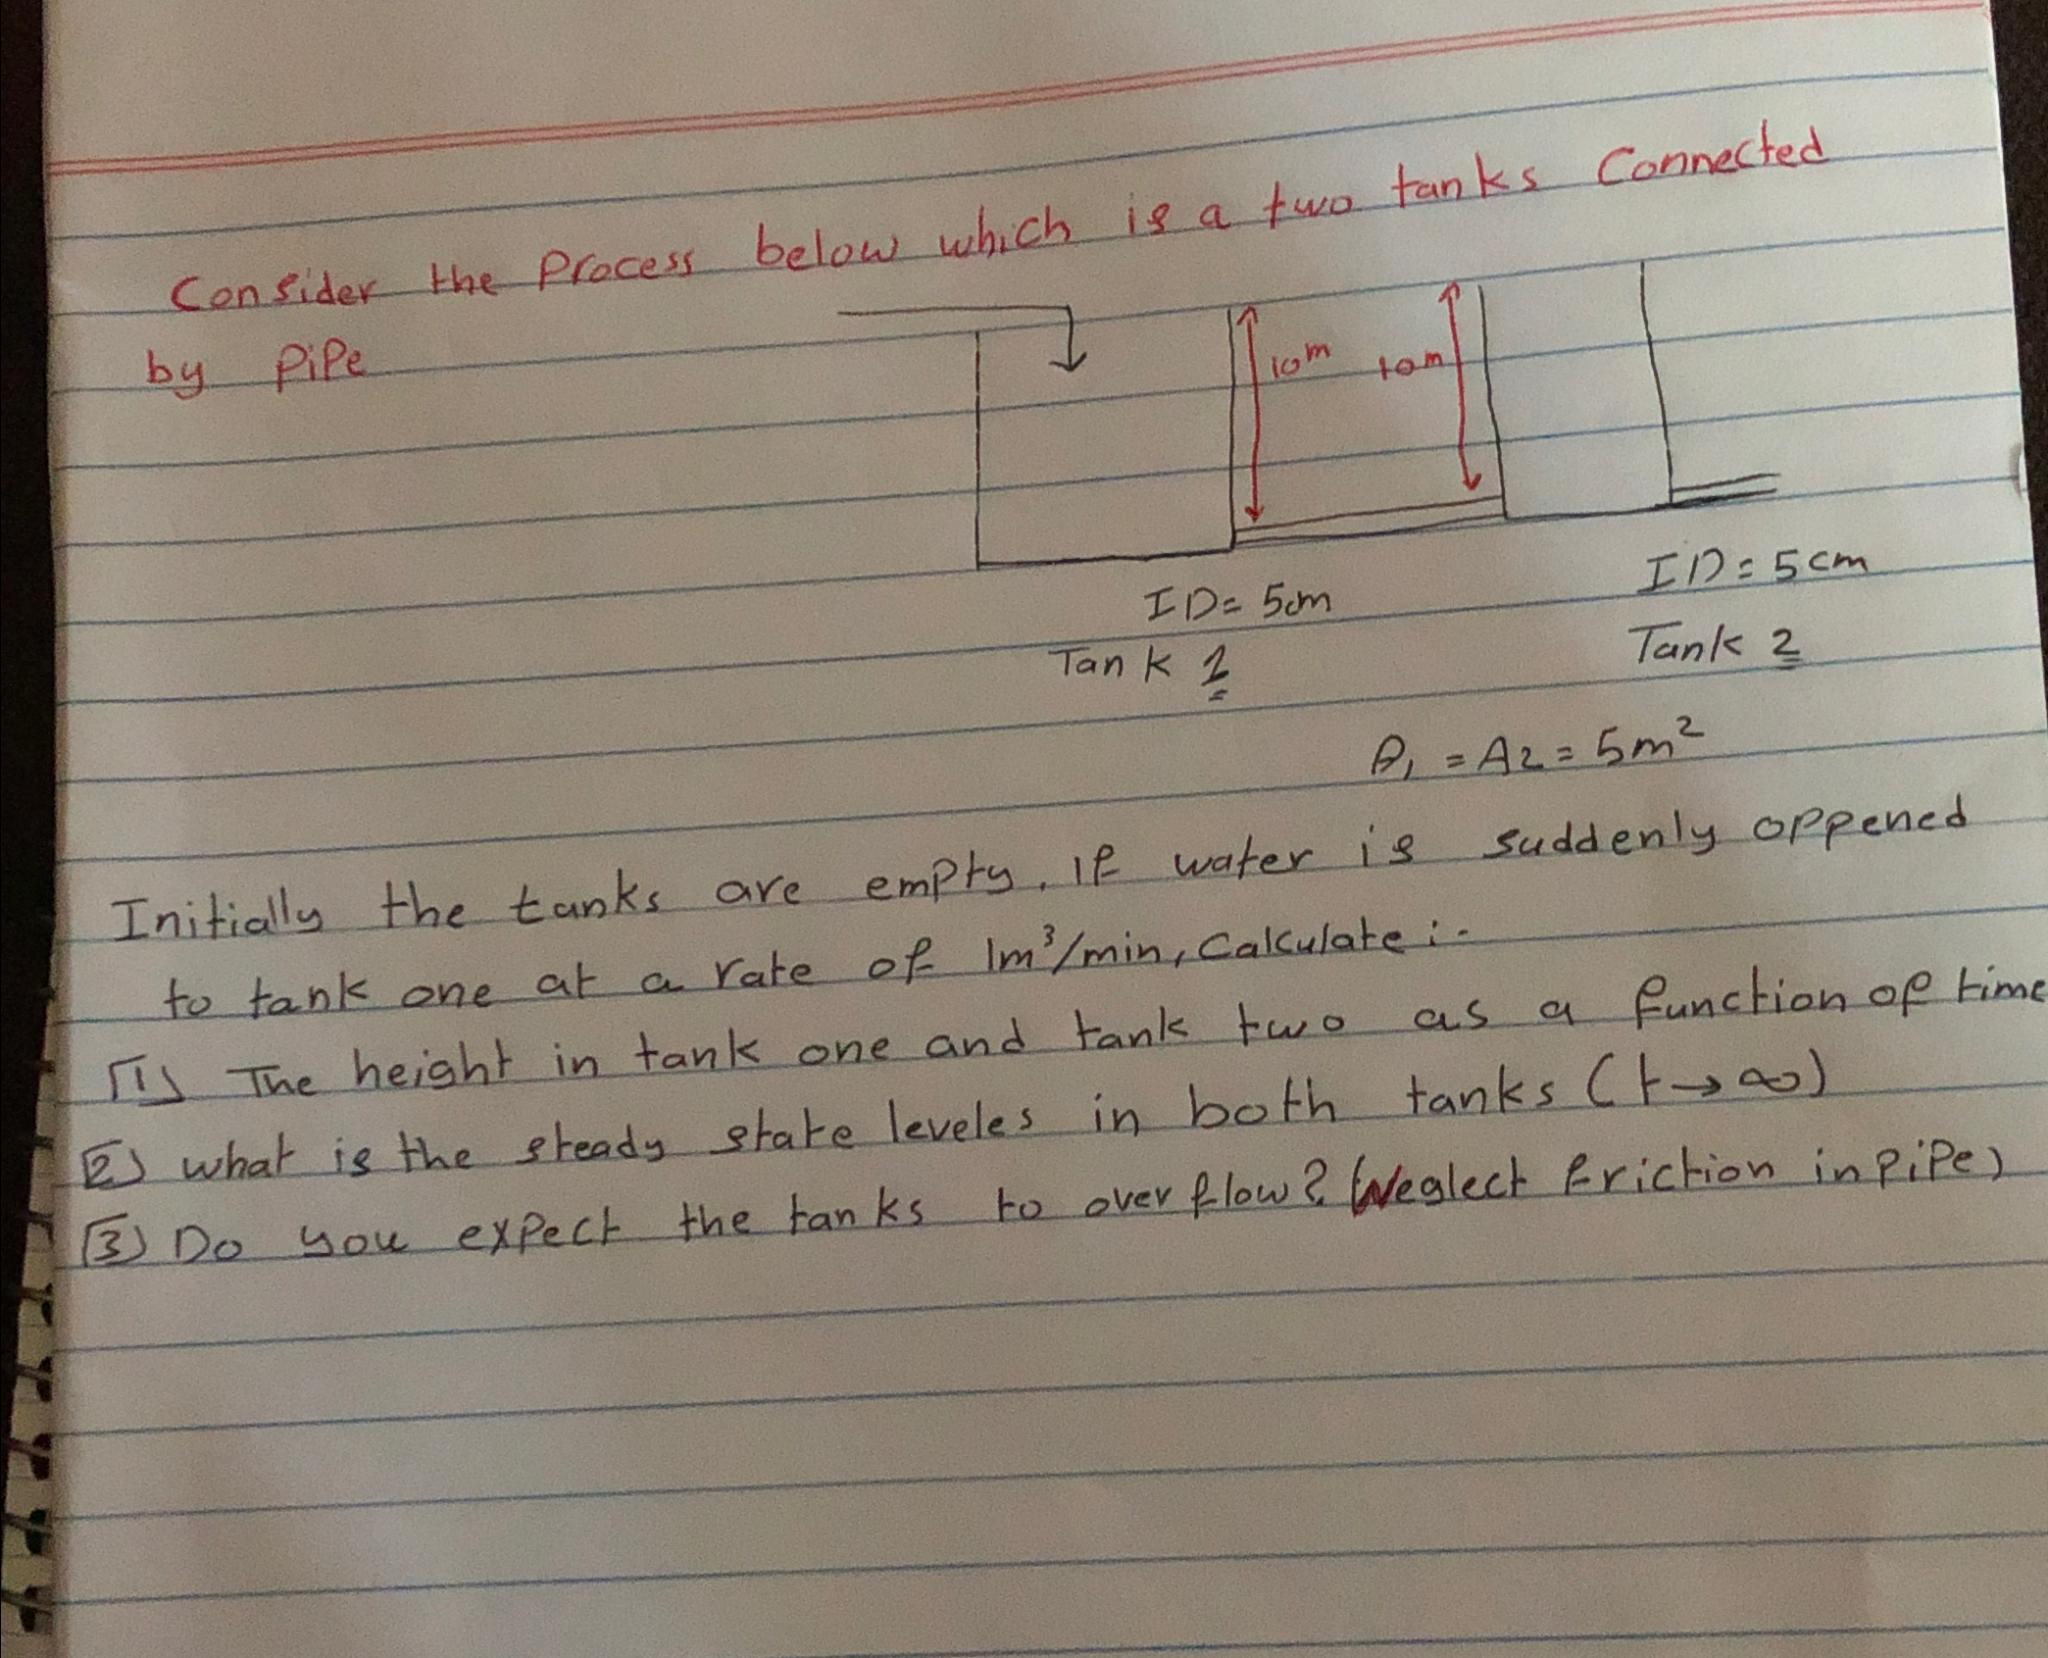 Consider the Process below which is a two tanks Connected
by PiPe
10m 10m
ID= 5cm ID= 5cm
Tank 1 Tank 2
A1 = A2 = 5m²
Initially the tanks are empty. If water is suddenly oppened
to tank one at a rate of 1m³/min, Calculate :-
[1] The height in tank one and tank two as a function of time
[2] what is the steady state leveles in both tanks (t→∞)
[3] Do you expect the tanks to over flow? (Neglect friction in pipe)